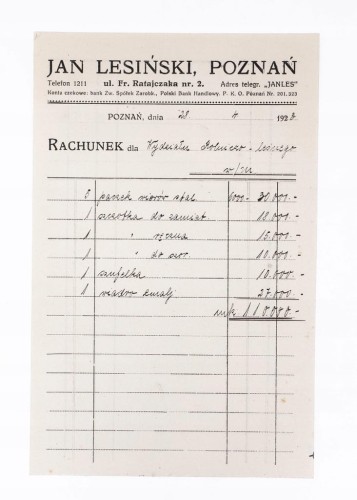 JAN LESIŃSKI, POZNAŃ
Telefon 1211 ul. Fr. Ratajczaka nr. 2. Adres telegr. „JANLES"
Konta czekowe: bank Zw. Spółek Zarobk., Polski Bank Handlowy. P. K. O. Poznań Nr. 201,323
POZNAŃ, dnia 28 4 1923
RACHUNEK dla Wydziału
w/m
5 paczek wiórów stal. 6000.- 30.000.-
1 szczotka do zamiat. 18.000.-
1 " ręczna 15.000.-
1 " do szor. 10.000.-
1 szufelka 10.000.-
1 wiadro emalj 27.000.-
mk. 110.000.-